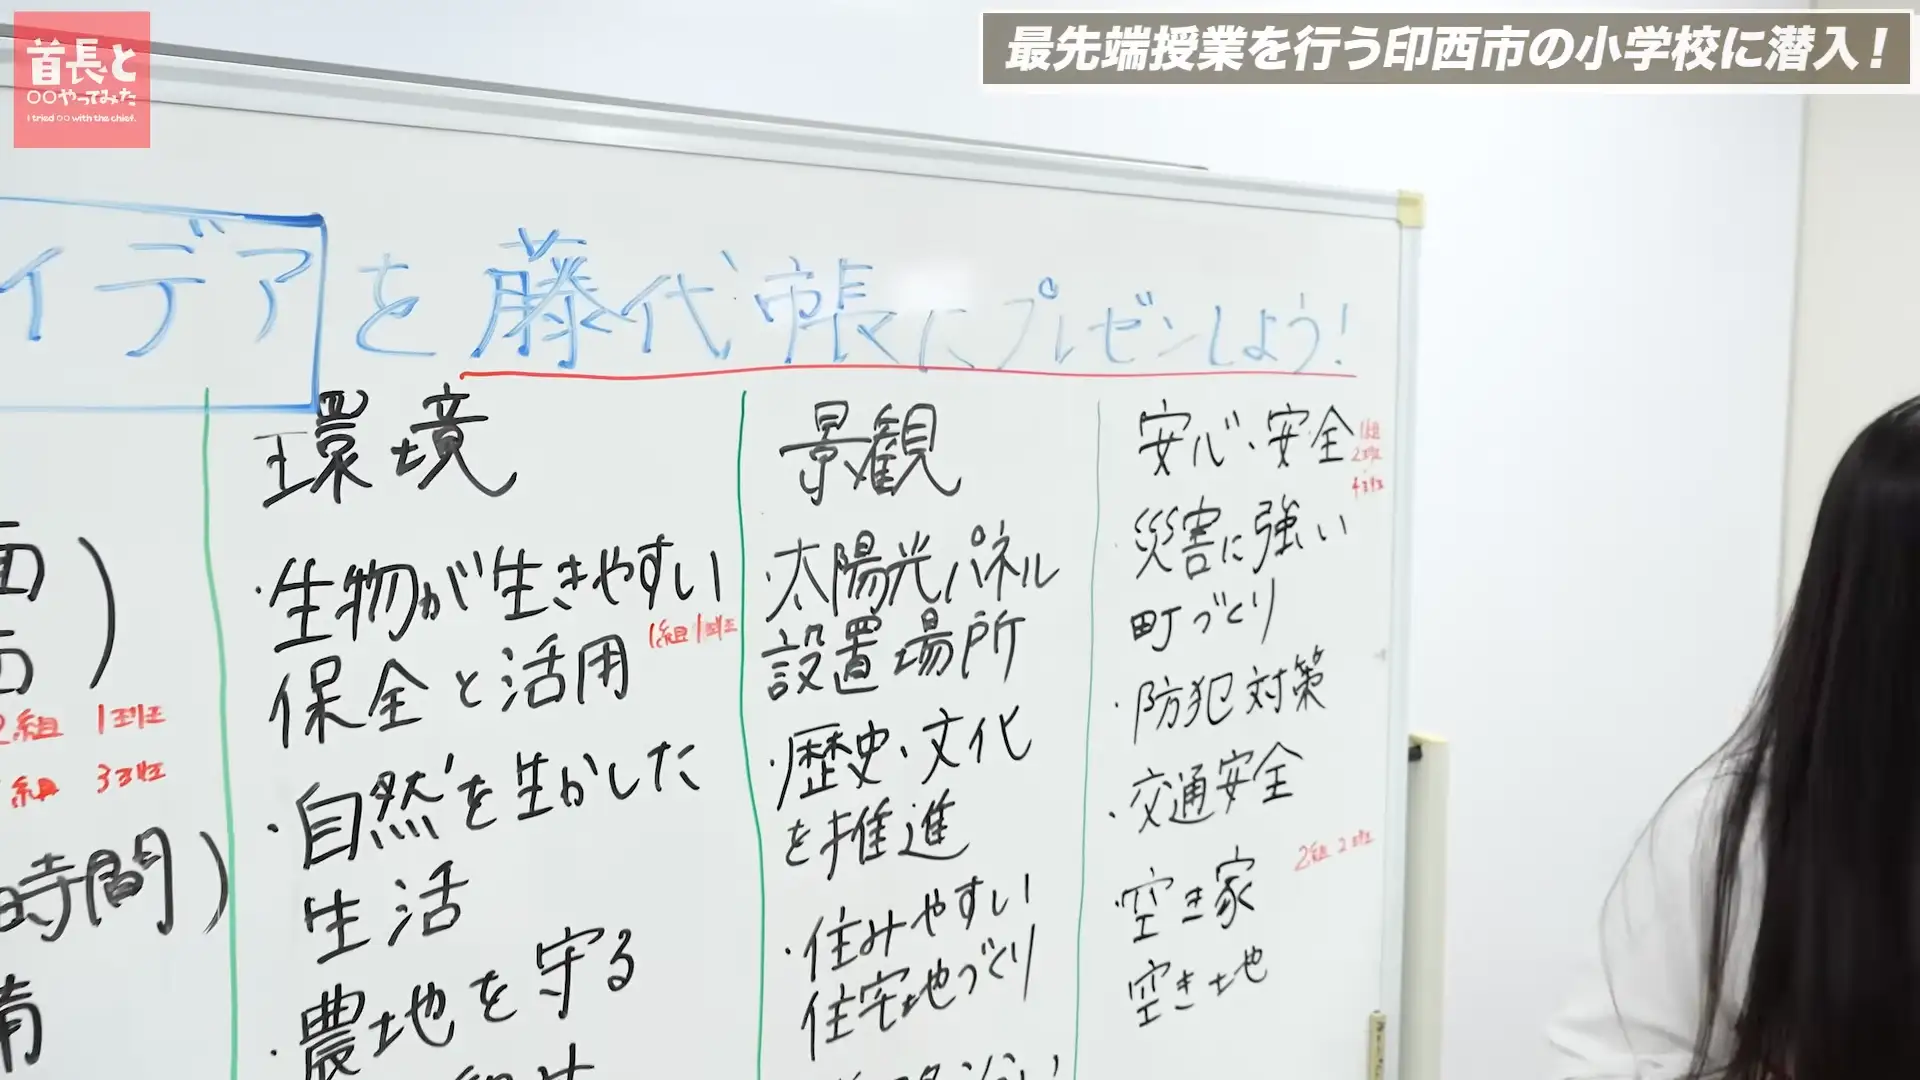 首長と
○○やってみた
I tried ○○ with the chief.
最先端授業を行う印西市の小学校に潜入！
イデアを藤代帳にプレゼンしよう！
2組 1班
組 3班
時間）
環境
・生物が生きやすい
保全と活用
1組1班
・自然を生かした
生活
・農地を守る
景観
・太陽光パネル
設置場所
・歴史・文化
を推進
・住みやすい
住宅地づくり
安心・安全
1組
2班
4班
・災害に強い
町づくり
・防犯対策
・交通安全
2組2班
・空き家
空き地